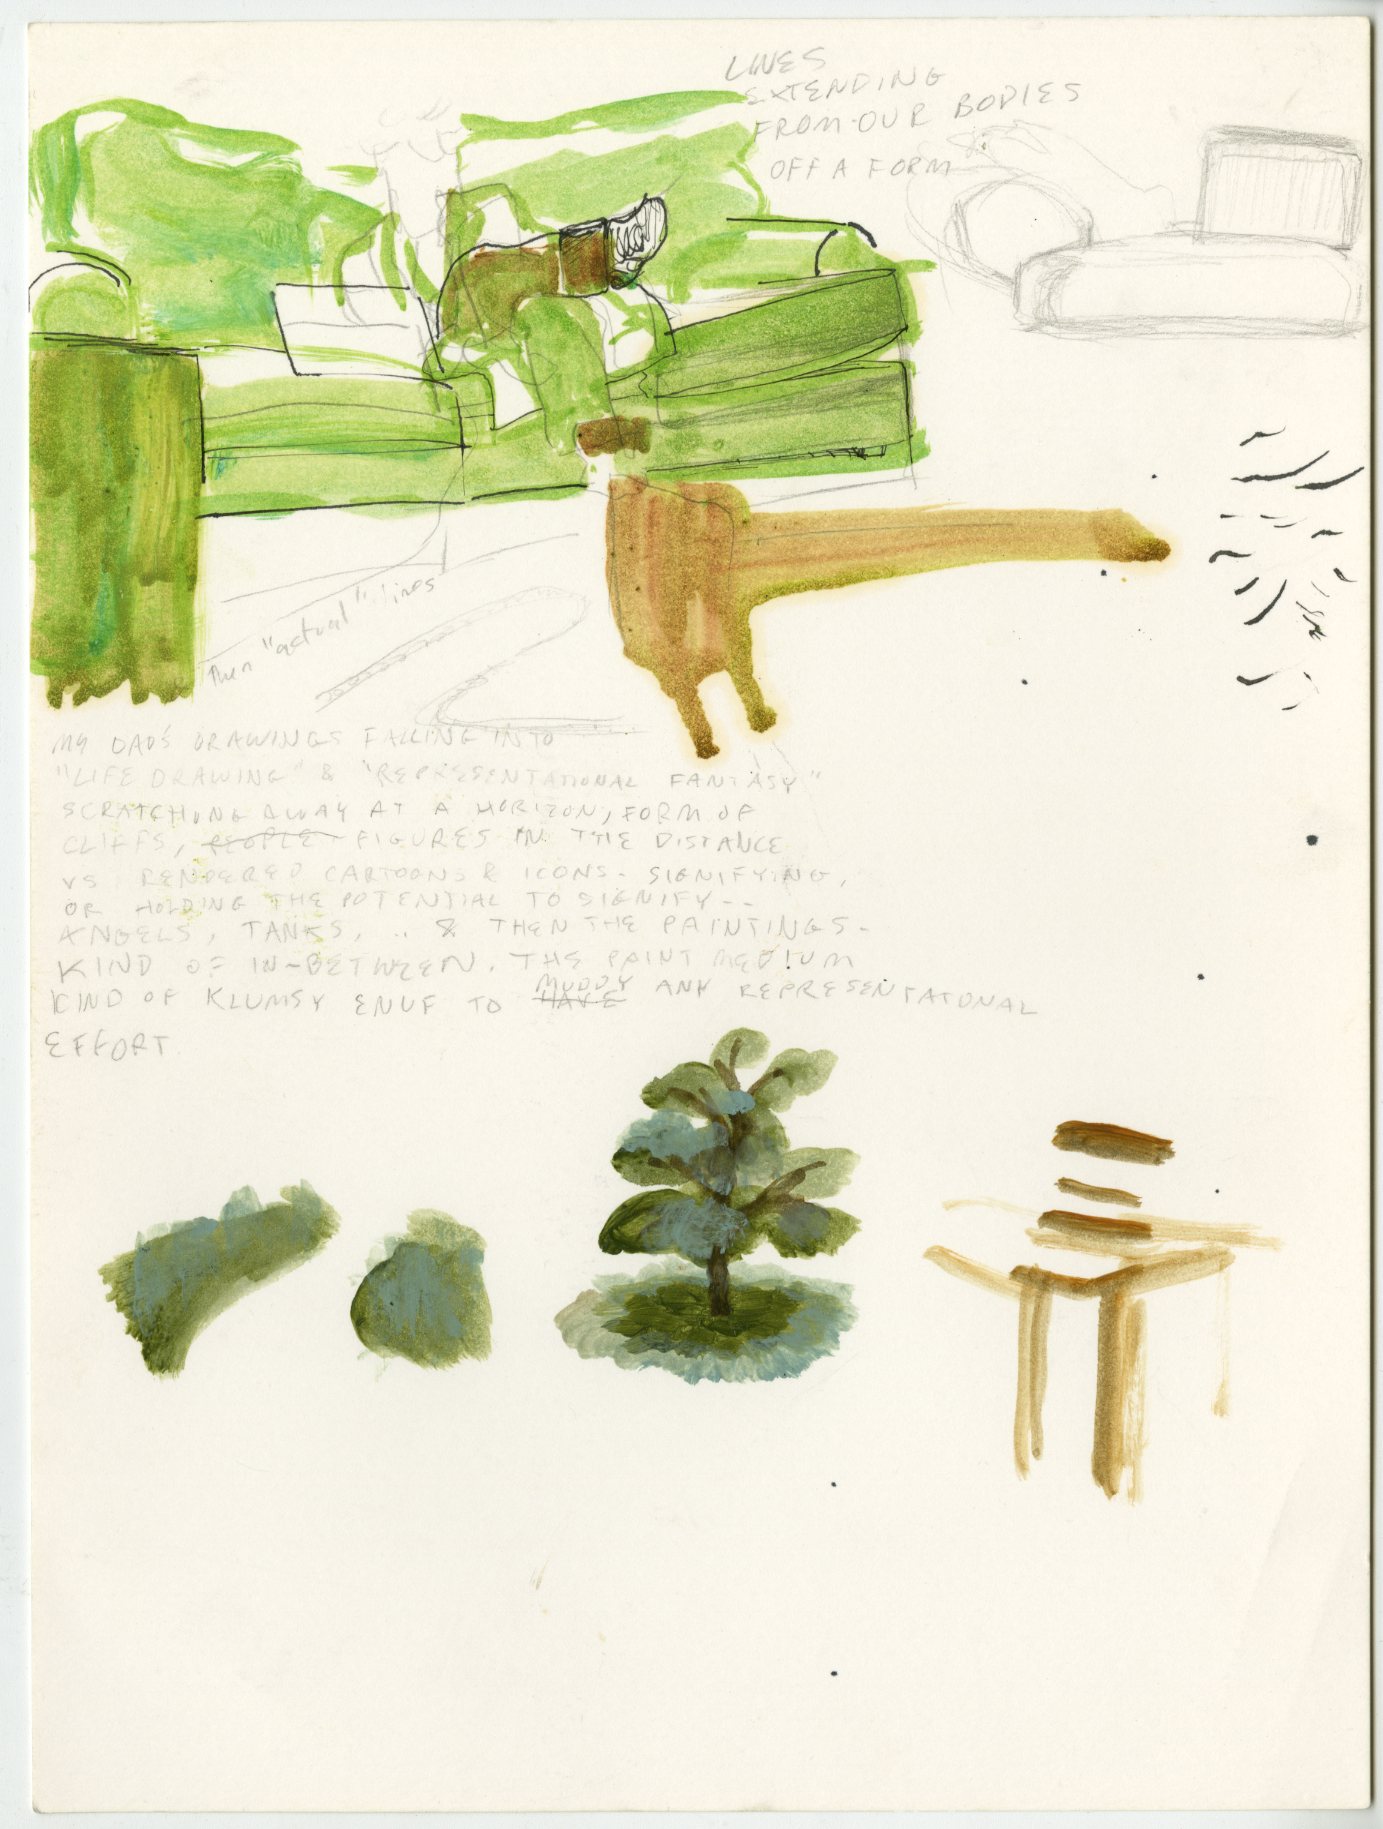 LINES
EXTENDING
FROM OUR BODIES
OFF A FORM
then "actual" lines
MY DAD'S DRAWINGS FALLING INTO
"LIFE DRAWING" & "REPRESENTATIONAL FANTASY"
SCRATCHING AWAY AT A HORIZON, FORM OF
CLIFFS, PEOPLE FIGURES IN THE DISTANCE
VS RENDERED CARTOONS & ICONS. SIGNIFYING,
OR HOLDING THE POTENTIAL TO SIGNIFY--
ANGELS, TANKS, .. & THEN THE PAINTINGS-
KIND OF IN-BETWEEN. THE PAINT MEDIUM
KIND OF KLUMSY ENUF TO HAVE MUDDY ANY REPRESENTATIONAL
EFFORT